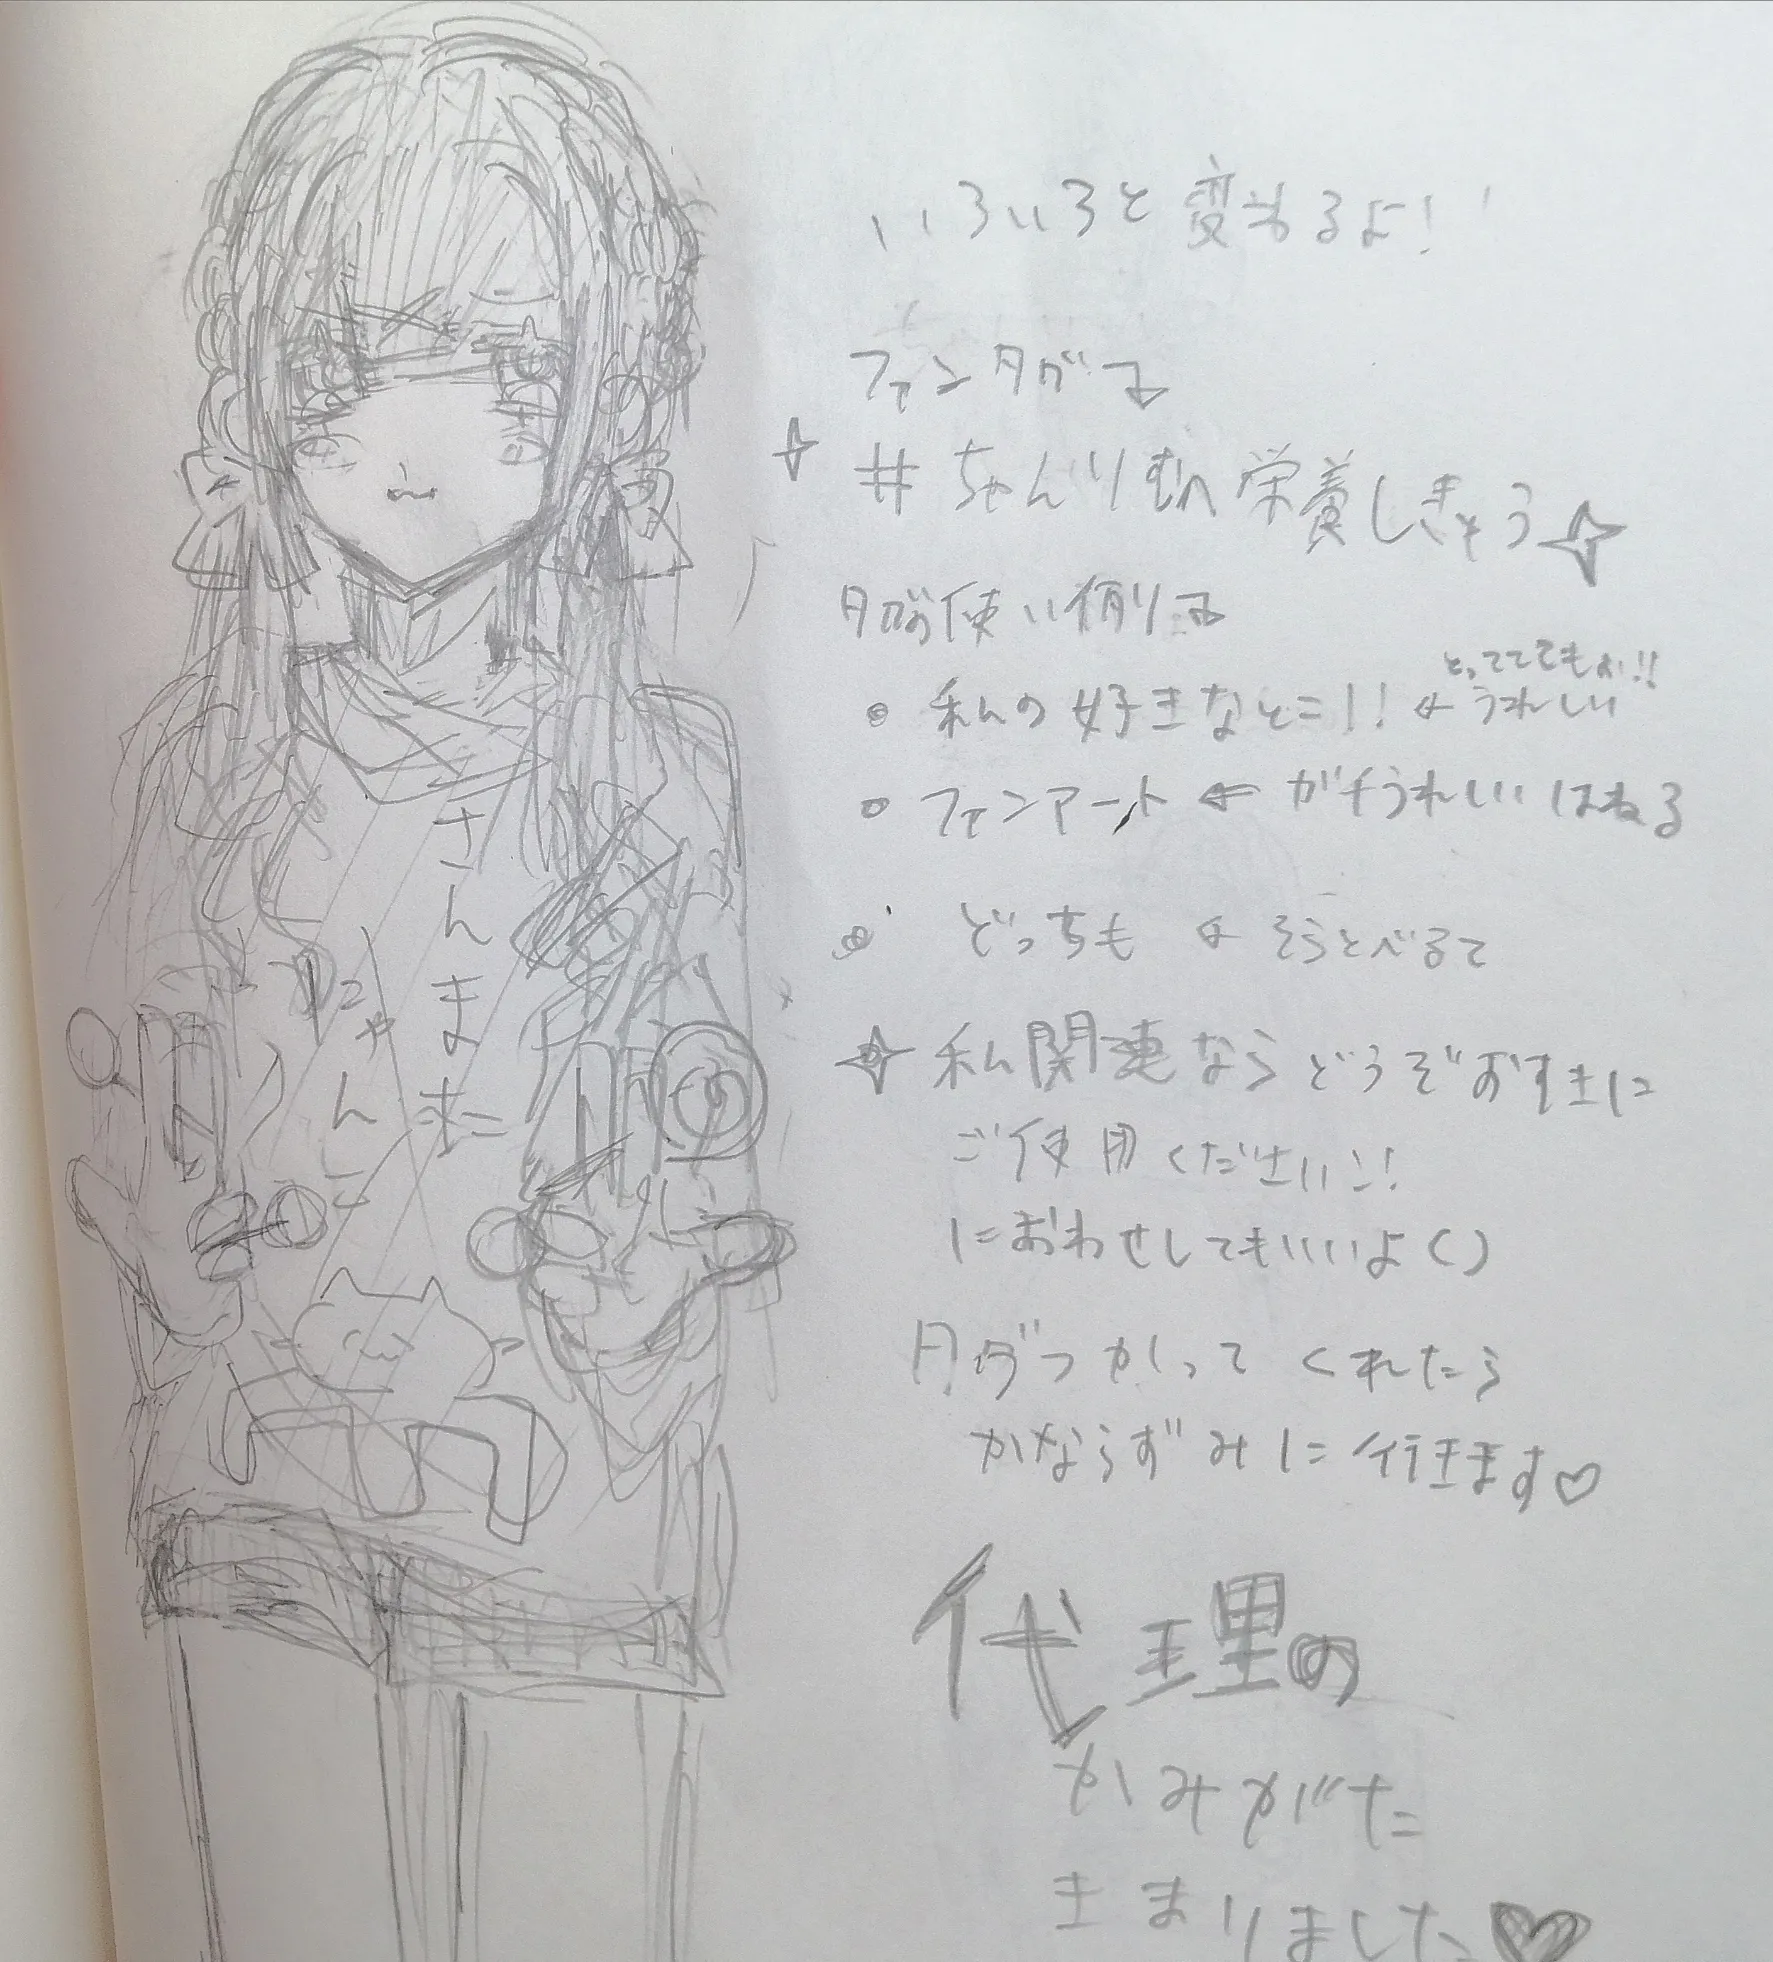 いろいろと変わるよ!
ファンタグ↴
#ちゃんりむへ栄養しきょう
タグ使い例り↴
とってもよい!!
・私の好きなとこ!! ← うれしい
・ファンアート ← ガチうれしいはねる
・どっちも ← そうとべるて
私関連ならどうぞおすきに
ご使用ください!!
におわせしてもいいよ()
タグつかってくれたら
かならずみに行きます♡
代理の
かみがた
きまりました♥
さんまた
にゃんこ